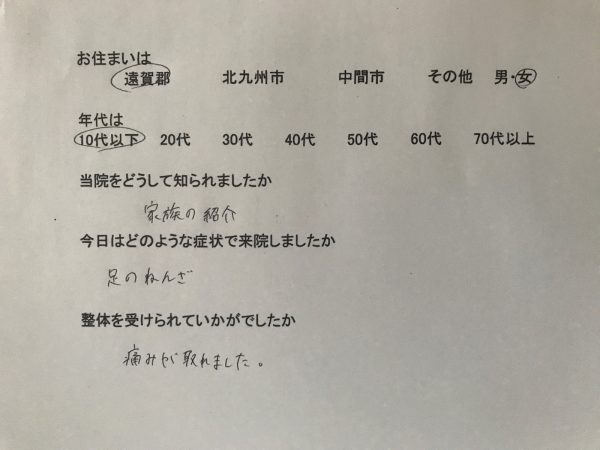 お住まいは
遠賀郡 北九州市 中間市 その他 男・女
年代は
10代以下 20代 30代 40代 50代 60代 70代以上
当院をどうして知られましたか
家族の紹介
今日はどのような症状で来院しましたか
足のねんざ
整体を受けられていかがでしたか
痛みが取れました。